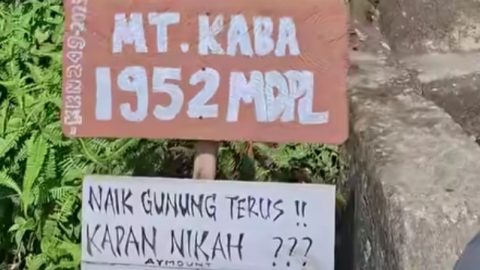 MT. KABA
1952 MDPL
-KKN249-2025
NAIK GUNUNG TERUS !!
KAPAN NIKAH ???
AYMOUNT